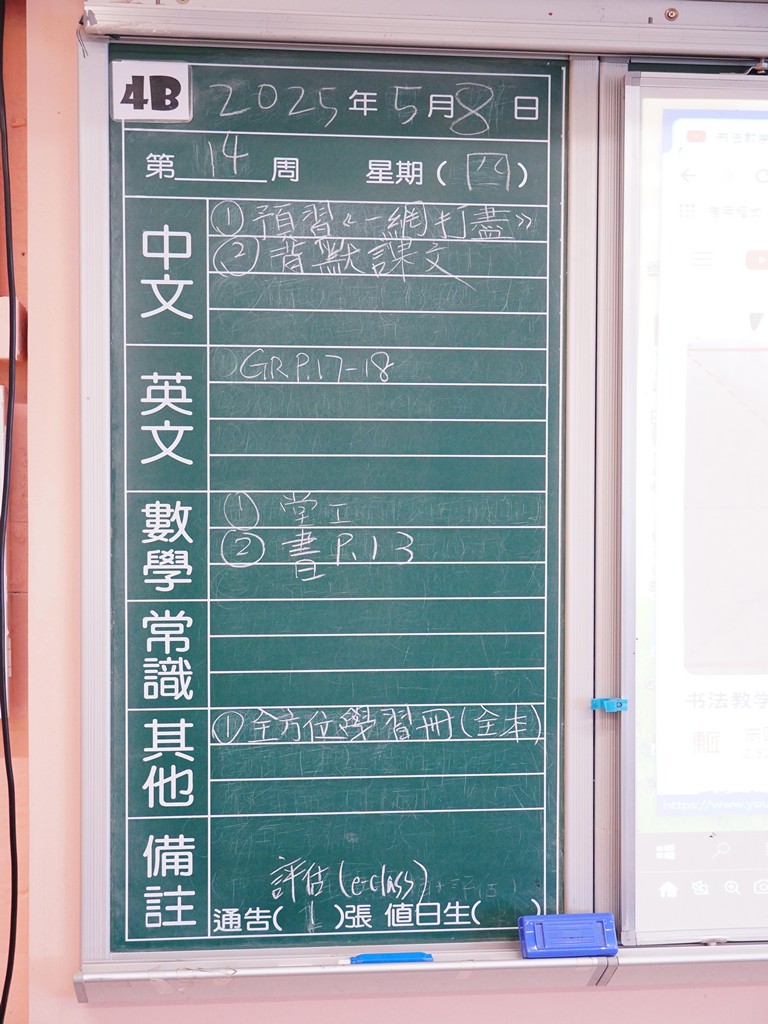 4B 2025年5月8日
第14周 星期(四)
中文
① 預習《一網打盡》
② 背默課文
英文
① GR P.17-18
數學
① 堂工
② 書 P.13
常識
其他
① 全方位學習冊(全本)
備註
評估(e-class)
通告(1)張 值日生( )
书法教学
https://www.you